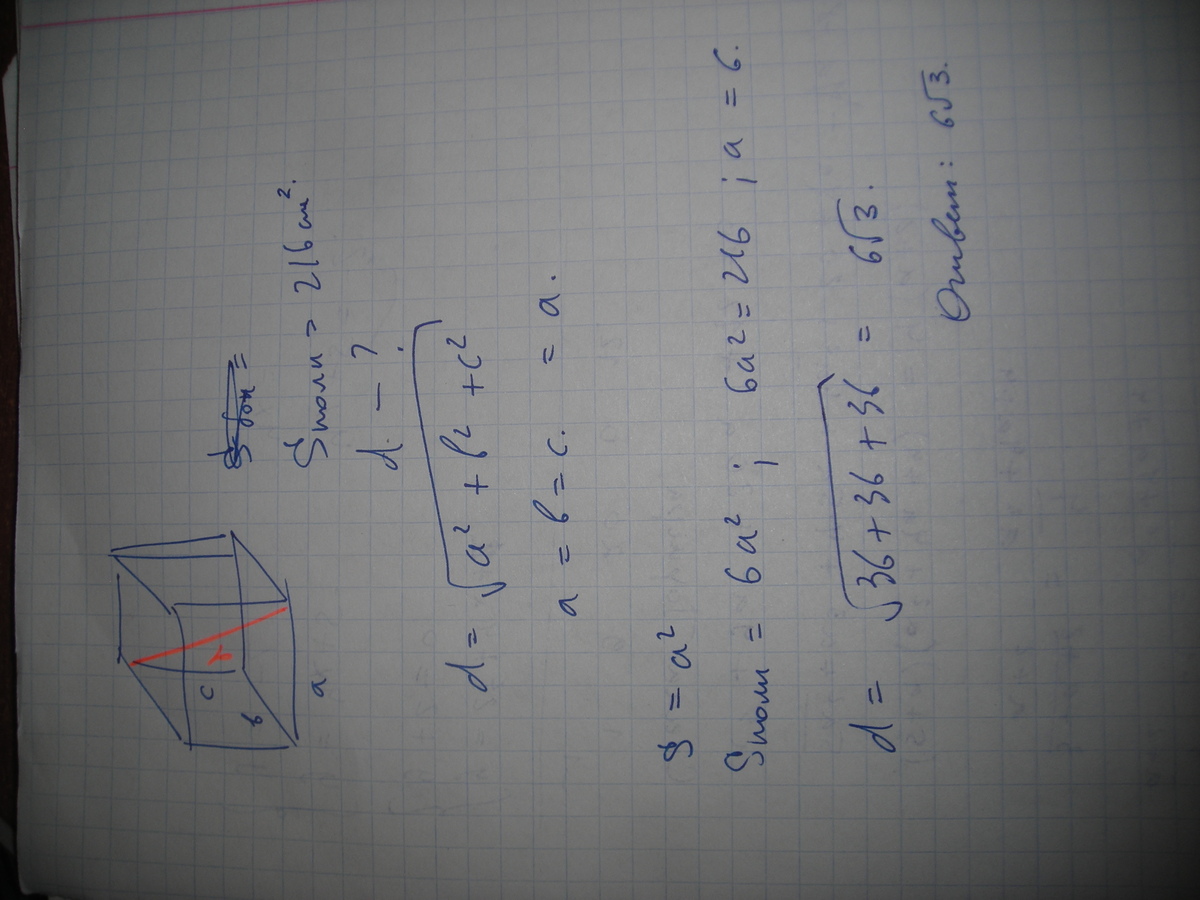 S бок =
Sполн = 216 см².
d. – ?
d = √a² + b² + c²
a = b = c. = a.
S = a²
Sполн = 6a² ; 6a² = 216 ; a = 6.
d = √36 + 36 + 36 = 6√3.
Ответ: 6√3.
c
b
a